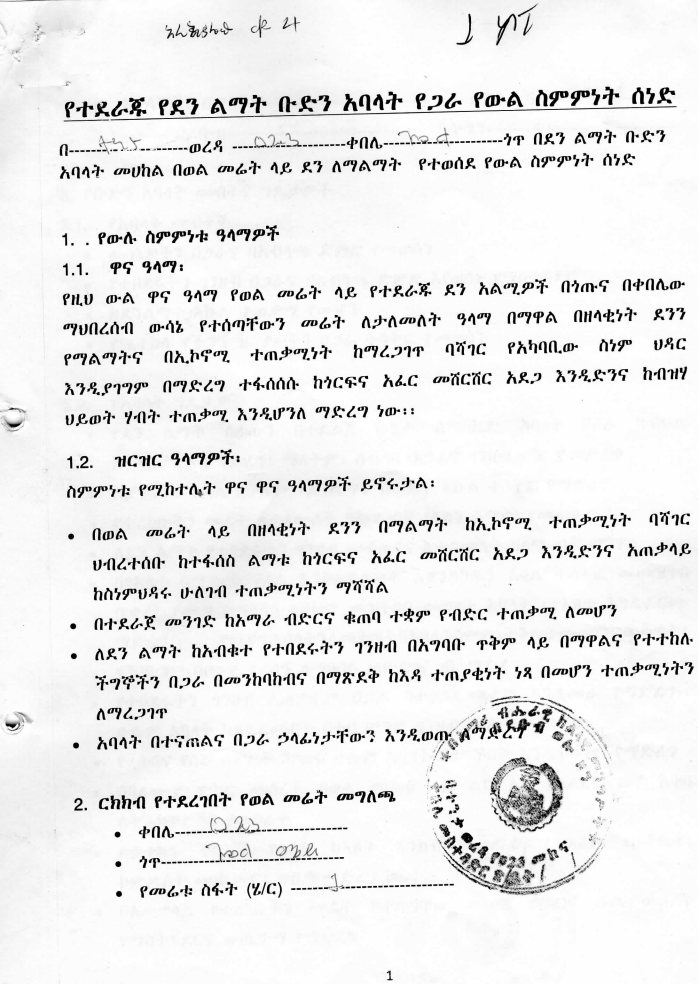 የተደራጁ የደን ልማት ቡድን አባላት የጋራ የውል ስምምነት ሰነድ
በ----------------------ወረዳ ----------------------ቀበሌ----------------------ጎጥ በደን ልማት ቡድን
አባላት መሀከል በወል መሬት ላይ ደን ለማልማት የተወሰደ የውል ስምምነት ሰነድ
1. . የውሉ ስምምነቱ ዓላማዎች
1.1. ዋና ዓላማ፡
የዚህ ውል ዋና ዓላማ የወል መሬት ላይ የተደራጁ ደን አልሚዎች በጎጡና በቀበሌው
ማህበረሰብ ውሳኔ የተሰጣቸውን መሬት ለታለመለት ዓላማ በማዋል በዘላቂነት ደንን
የማልማትና በኢኮኖሚ ተጠቃሚነት ከማረጋገጥ ባሻገር የአካባቢው ስነም ህዳር
እንዲያገግም በማድረግ ተፋሰሰሱ ከጎርፍና አፈር መሸርሸር አደጋ እንዲድንና ከብዝሃ
ህይወት ሃብት ተጠቃሚ እንዲሆንለ ማድረግ ነው፡፡
1.2. ዝርዝር ዓላማዎች፡
ስምምነቱ የሚከተሊት ዋና ዋና ዓላማዎች ይኖሩታል፡
• በወል መሬት ላይ በዘላቂነት ደንን በማልማት ከኢኮኖሚ ተጠቃሚነት ባሻገር
ህብረተሰቡ ከተፋሰስ ልማቱ ከጎርፍና አፈር መሸርሸር አደጋ እንዲድንና አጠቃላይ
ከስነምህዳሩ ሁለገብ ተጠቃሚነትን ማሻሻል
• በተደራጀ መንገድ ከአማራ ብድርና ቁጠባ ተቋም የብድር ተጠቃሚ ለመሆን
• ለደን ልማት ከአብቁተ የተበደሩትን ገንዘብ በአግባቡ ጥቅም ላይ በማዋልና የተተከሉ
ችግኞችን በጋራ በመንከባከብና በማጽደቅ ከእዳ ተጠያቂነት ነጻ በመሆን ተጠቃሚነትን
ለማረጋገጥ
• አባላት በተናጠልና በጋራ ኃላፊነታቸውን እንዲወጡ ለማድረግ
2. ርክክብ የተደረገበት የወል መሬት መግለጫ
• ቀበሌ------------------------------
• ጎጥ------------------------------
• የመሬቱ ስፋት (ሄ/ር) -------1----------------------
1